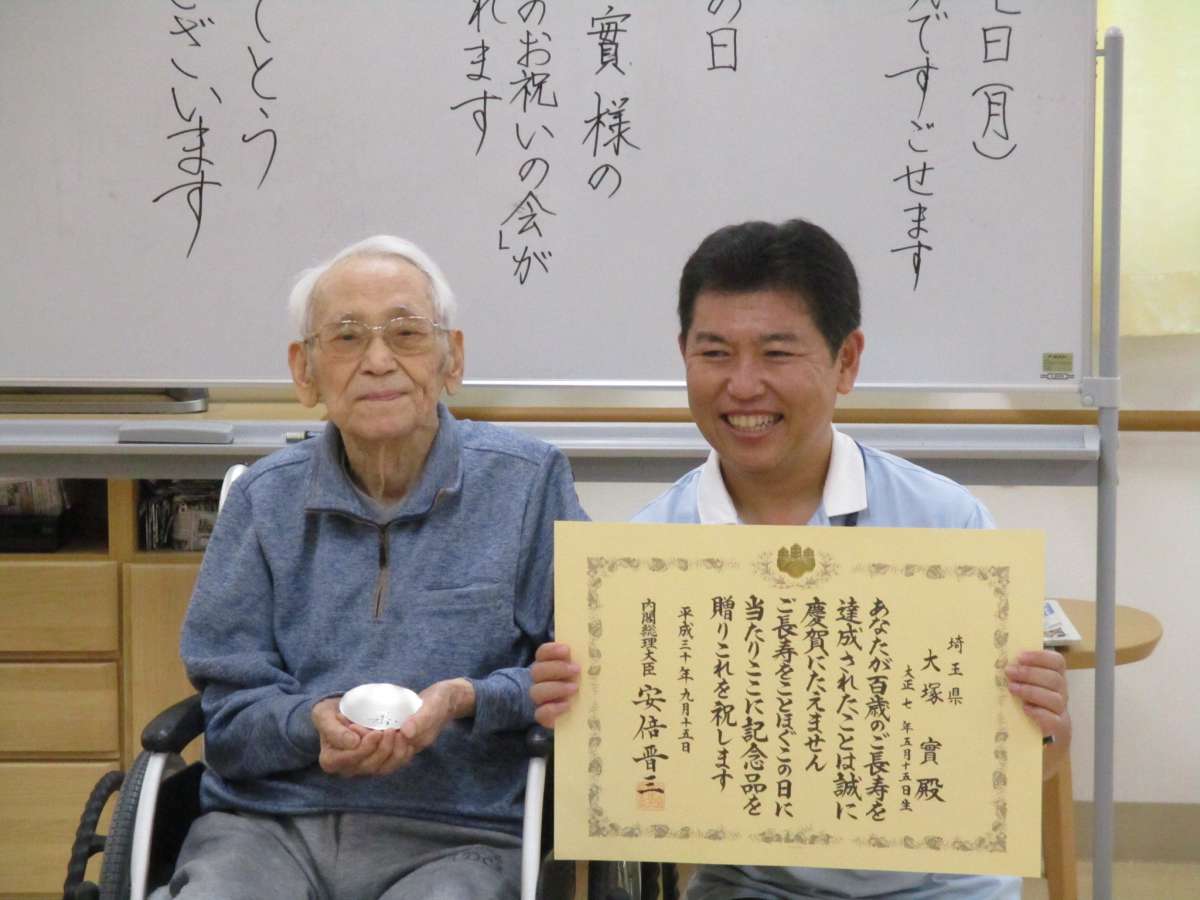 七日(月)
ですごせます
の日
實様の
のお祝いの会」が
れます
とう
ざいます
あなたが百歳のご長寿を
達成されたことは誠に
慶賀にたえません
ご長寿をことほぐこの日に
当たりここに記念品を
贈りこれを祝します
平成三十年九月十五日
内閣総理大臣 安倍晋三
埼玉県
大塚實殿
大正七年五月十五日生